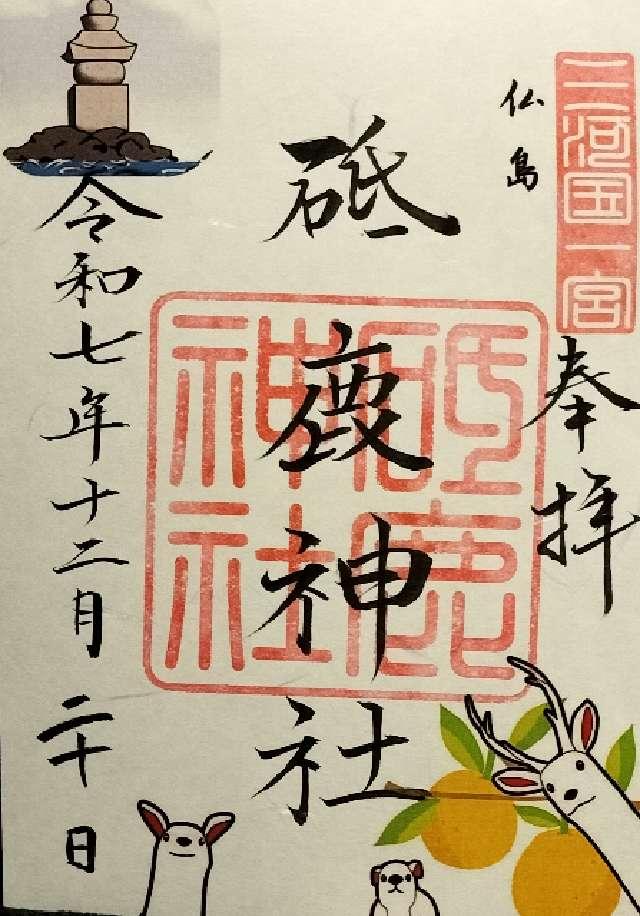 三河国一宮
仏島
奉拝
砥鹿神社
砥鹿神社
令和七年十二月二十日